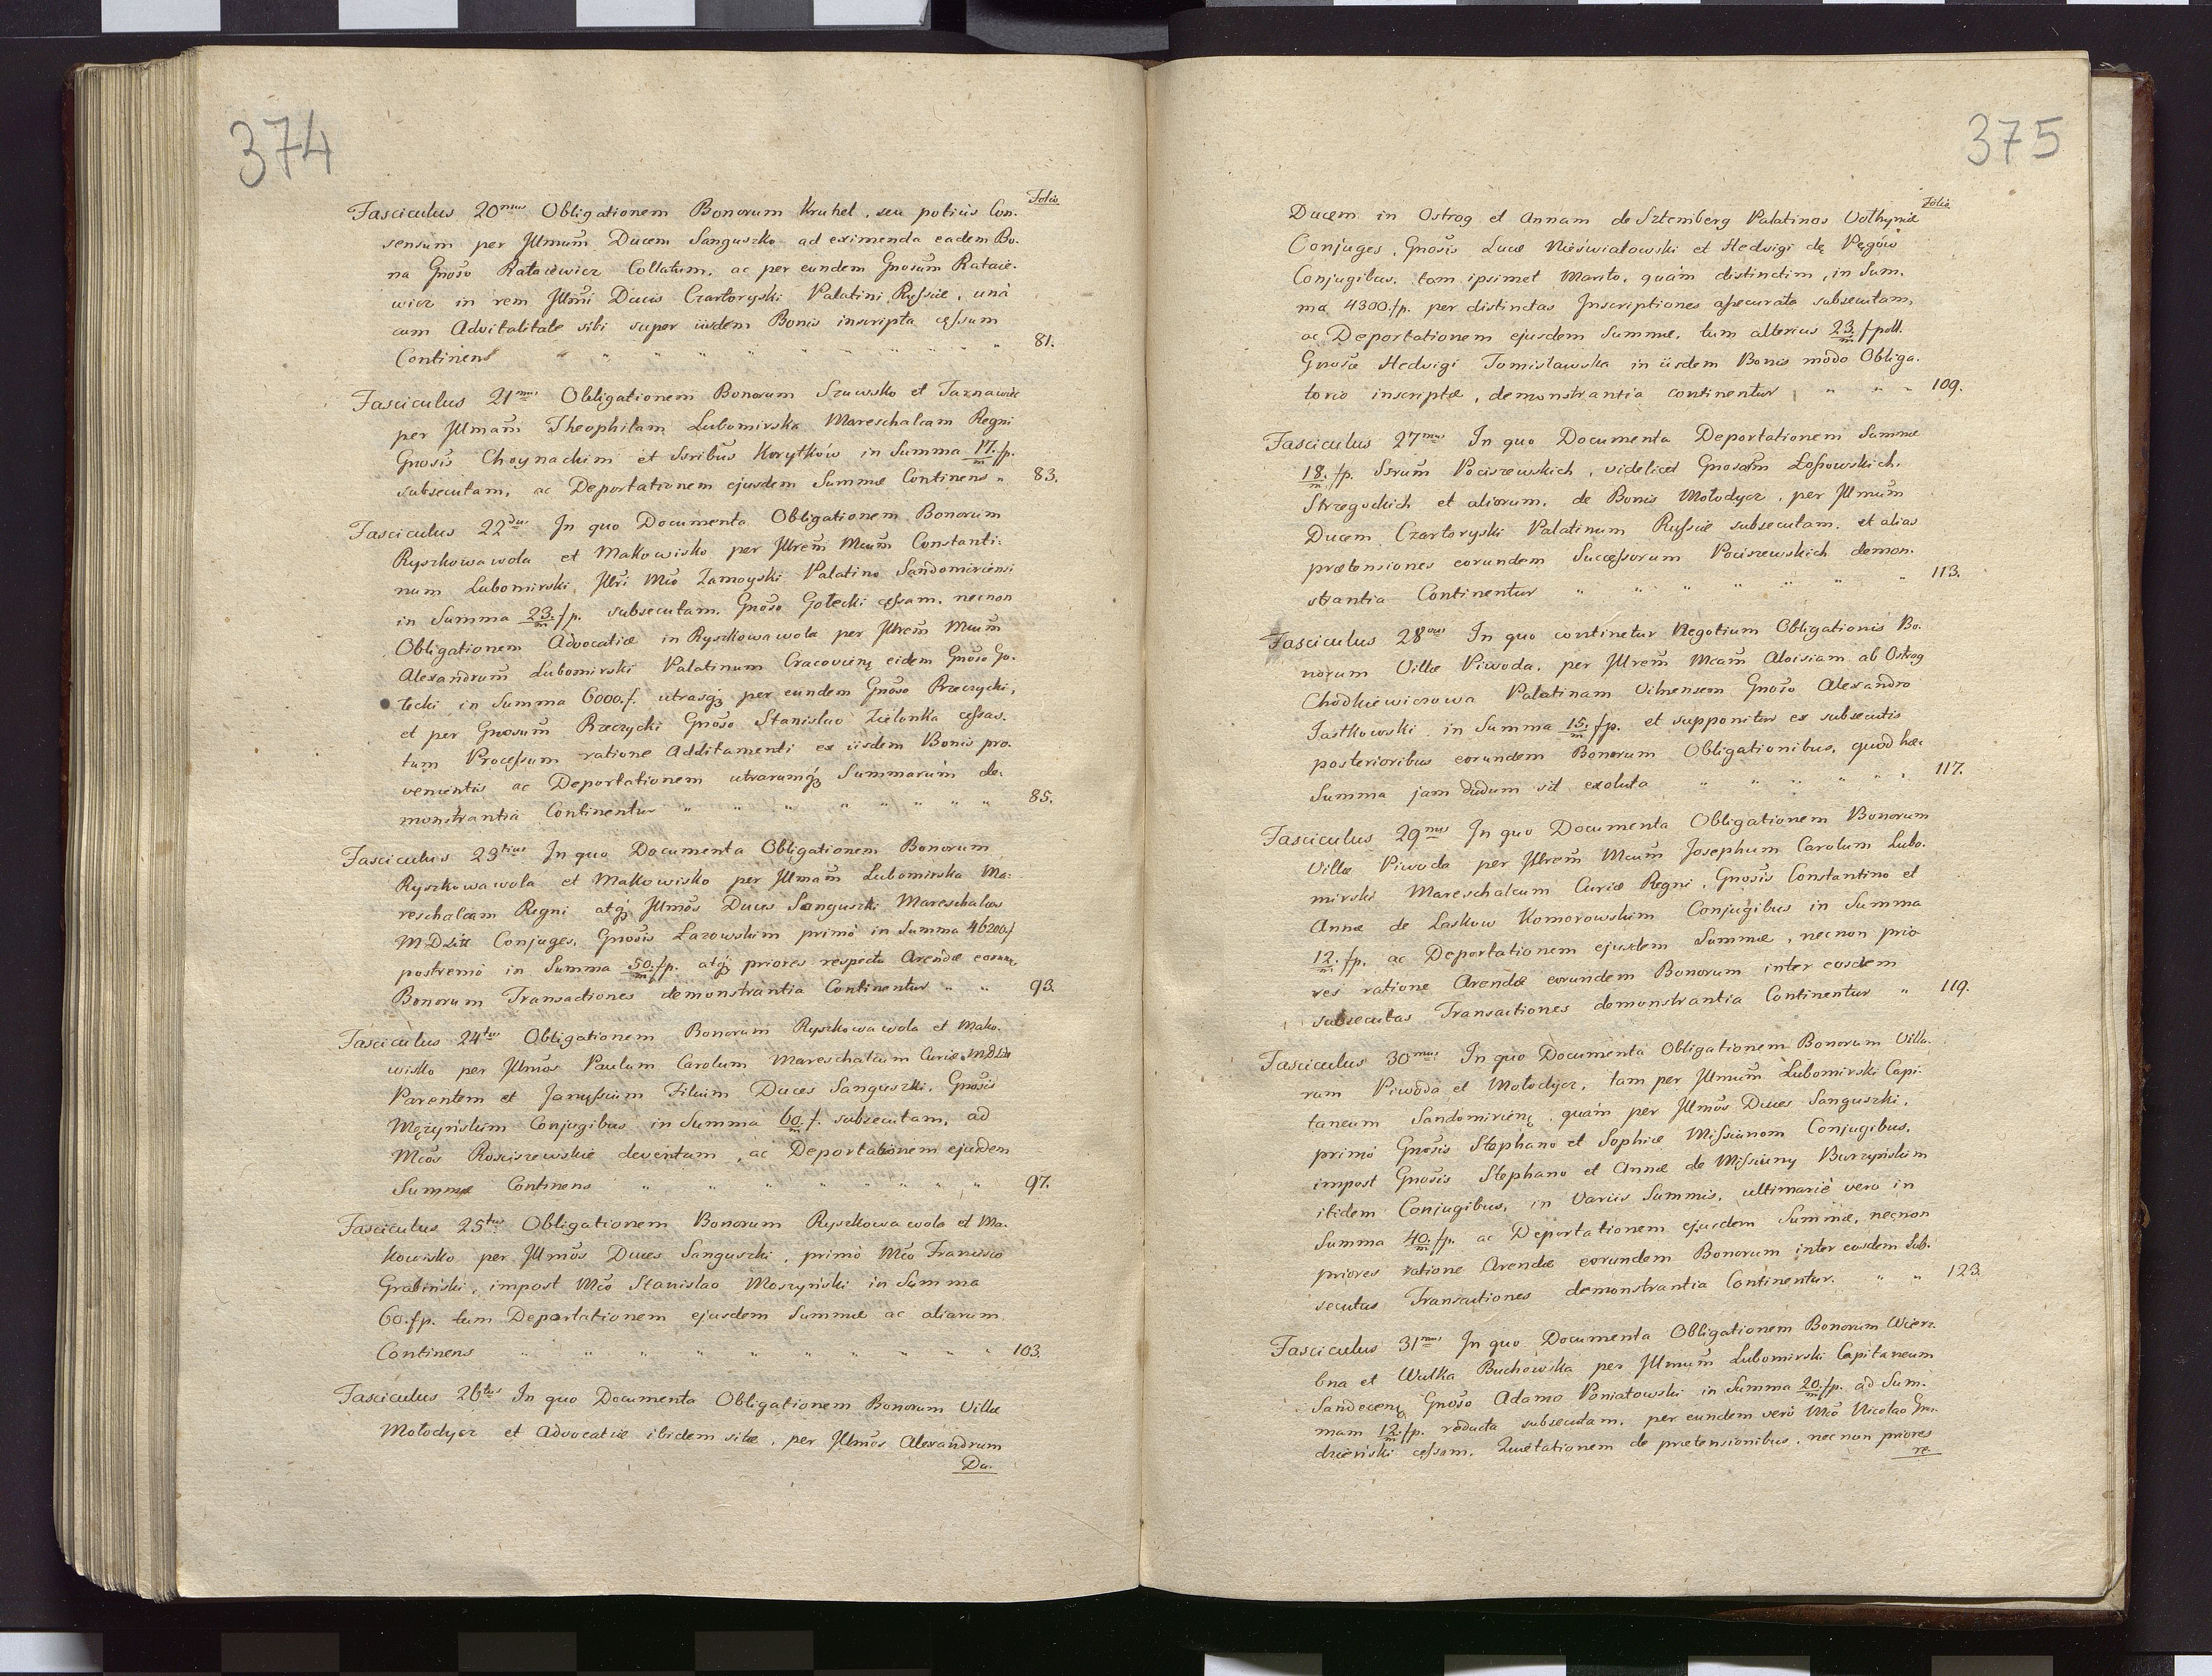 374
Folio
Fasciculus 20mus Obligationem Bonorum Kruhel, seu potius Con-
sensum per Jllmum Ducem Sanguszko ad eximenda eadem Bo-
na Gnoso Rataiewicz Collatum, ac per eundem Gnosum Rataie-
wicz in rem Jllmi Ducis Czartoryski Palatini Russiæ, unà
cum Advitalitate sibi super iisdem Bonis inscripta cessum
Continens " " " " " " " " " " 81.
Fasciculus 21mus Obligationem Bonorum Szuwsko et Tarnawiec
per Jllmam Theophilam Lubomirska Mareschalcam Regni
Gnosis Choynackim et Ssribus Korytków in Summa 17/m fp.
subsecutam, ac Deportationem ejusdem Summæ Continens " 83.
Fasciculus 22dus In quo Documenta Obligationem Bonorum
Ryszkowawola et Makowisko per Jllrem Mcum Constanti-
num Lubomirski Jllri Mco Zamoyski Palatino Sandomiriensi
in Summa 23/m fp. subsecutam, Gnoso Gołecki cessam, necnon
Obligationem Advocatiæ in Ryszkowawola per Jllrem Mcum
Alexandrum Lubomirski Palatinum Cracovienę eidem Gnoso Go-
łecki in Summa 6000 f. utrasqȝ per eundem Gnoso Rzeczycki,
et per Gnosum Rzeczycki Gnoso Stanislao Zielonka cessas.
tum Processum ratione Additamenti ex iisdem Bonis pro-
venientis ac Deportationem utrarumqȝ Summarum de-
monstrantia Continentur " " " " " " " 85.
Fasciculus 23tius In quo Documenta Obligationem Bonorum
Ryszkowawola et Makowisko per Jllmam Lubomirska Ma-
reschalcam Regni atqȝ Jllmos Duces Sanguszki Mareschalcos
M D Litt Conjuges, Gnosis Łazowskim primò in Summa 46200 f
postremò in Summa 50/m fp. atqȝ priores respectu Arendæ eorum
Bonorum Transactiones demonstrantia Continentur " " 93.
Fasciculus 24tus Obligationem Bonorum Ryszkowawola et Mako-
wisko per Jllmos Paulum Carolum Mareschalcum Curiæ M D Litt
Parentem et Janussium Filium Duces Sanguszki, Gnosis
Mężyńskim Conjugibus in Summa 60/m f. subsecutam, ad
Mcos Rosciszewskie deventam, ac Deportationem ejusdem
Summæ Continens " " " " " " " " 97.
Fasciculus 25tus Obligationem Bonorum Ryszkowawola et Ma-
kowisko per Jllmos Duces Sanguszki, primò Mco Francisco
Grabiński, impost Mco Stanislao Moszyński in Summa
60. fp. tum Deportationem ejusdem Summæ ac aliarum
Continens " " " " " " " " " " 103.
Fasciculus 26tus In quo Documenta Obligationem Bonorum Villæ
Mołodycz et Advocatiæ ibidem sitæ, per Jllmos Alexandrum
Du-
375
Folio
Ducem in Ostrog et Annam de Sztemberg Palatinos Volhyniæ
Conjuges, Gnosis Lucæ Nieświatowski et Hedvigi de Pęgów
Conjugibus, tam ipsimet Marito, quàm distinctim, in Sum-
ma 4300. fp. per distinctas Inscriptiones assecurata subsecutam,
ac Deportationem ejusdem Summæ, tum alterius 23/m f poll.
Gnosæ Hedvigi Tomisławska in iisdem Bonis modo Obliga-
torio inscriptæ, demonstrantia continentur " " " 109.
Fasciculus 27mus In quo Documenta Deportationem Summæ
18/m fp. Ssrum Pociszewskich, videlicet Gnosorum Łossowskich,
Strzegockich et aliorum, de Bonis Mołodycz, per Jllmum
Ducem Czartoryski Palatinum Russiæ subsecutam, et alias
prætensiones eorundem Successorum Pociszewskich demon-
strantia Continentur " " " " " " 113.
Fasciculus 28vus In quo continetur Negotium Obligationis Bo-
norum Villæ Piwoda, per Jllrem Mcam Aloisiam ab Ostrog
Chodkiewiczowa Palatinam Vilnensem Gnoso Alexandro
Jastkowski in Summa 15/m fp. et supponitur ex subsecutis
posterioribus eorundem Bonorum Obligationibus, quòd hæc
Summa jam dudum sit exoluta " " " " " 117.
Fasciculus 29nus In quo Documenta Obligationem Bonorum
Villæ Piwoda per Jllrem Mcum Josephum Carolum Lubo-
mirski Mareschalcum Curiæ Regni, Gnosis Constantino et
Annæ de Laskow Komorowskim Conjugibus in Summa
12/m fp. ac Deportationem ejusdem Summæ, necnon prio-
res ratione Arendæ eorundem Bonorum inter eosdem
subsecutas Transactiones demonstrantia Continentur " 119.
Fasciculus 30mus In quo Documenta Obligationem Bonorum Villa-
rum Piwoda et Mołodycz, tam per Jllmum Lubomirski Capi-
taneum Sandomirienę quàm per Jllmos Duces Sanguszki,
primò Gnosis Stephano et Sophiæ Missiunom Conjugibus,
impost Gnosis Stephano et Annæ de Missiuny Burzyńskim
itidem Conjugibus, in Variis Summis, ultimariè verò in
Summa 40/m fp. ac Deportationem ejusdem Summæ, necnon
priores ratione Arendæ eorundem Bonorum inter eosdem Sub-
secutas Transactiones demonstrantia Continentur. " " 123.
Fasciculus 31mus In quo Documenta Obligationem Bonorum Wierz-
bna et Wulka Buchowska per Jllmum Lubomirski Capitaneum
Sandecenę Gnoso Adamo Poniatowski in Summa 20/m fp. ad Sum-
mam 12/m fp. reducta subsecutam, per eundem verò Mco Nicolao
dzieński cessam, Quietationem de prætensionibus, necnon priores
re